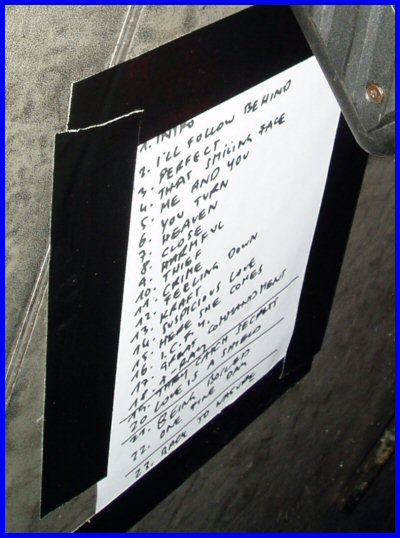 1. INTRO
2. I'LL FOLLOW BEHIND
3. PERFECT
4. THAT SMILING FACE
5. ME AND YOU
6. YOU TURN
7. HEAVEN
8. CLOSE
9. HARMFUL
10. THIEF
11. CRIME
12. FEELING DOWN
13. KRAFT
14. SUSPICIOUS LOVE
15. HERE SHE COMES
16. I.C.
17. GREAT COMMANDMENT
18. X-RAY
19. THEY CATCH SECRETS
20. LOVE IS A SHIELD
21. BEING BOILED
22. ONE FINE DAY
23. BACK TO NATURE